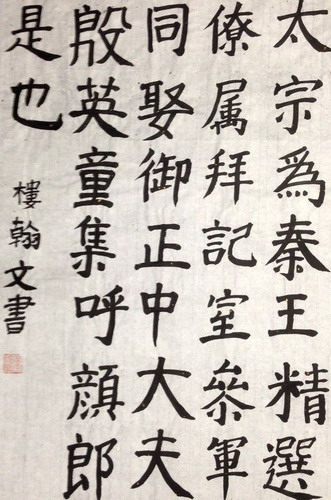 太宗為秦王精選
僚属拜記室叅軍
同娶御正中大夫
殷英童集呼顔郎
是也
樓翰文書